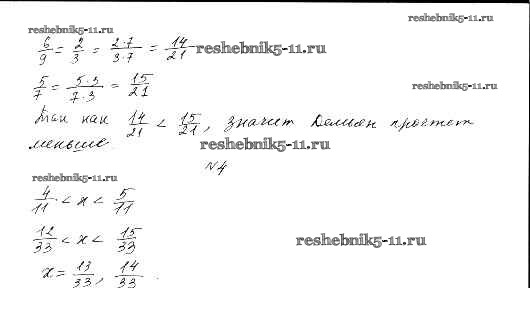 reshebnik5-11.ru
reshebnik5-11.ru
6/9 = 2/3 = 2·7/3·7 = 14/21 reshebnik5-11.ru
5/7 = 5·3/7·3 = 15/21 reshebnik5-11.ru
Так как 14/21 < 15/21, значит
меньше. reshebnik5-11.ru
№4
reshebnik5-11.ru
4/11 < x < 5/11
12/33 < x < 15/33 reshebnik5-11.ru
x = 13/33, 14/33.